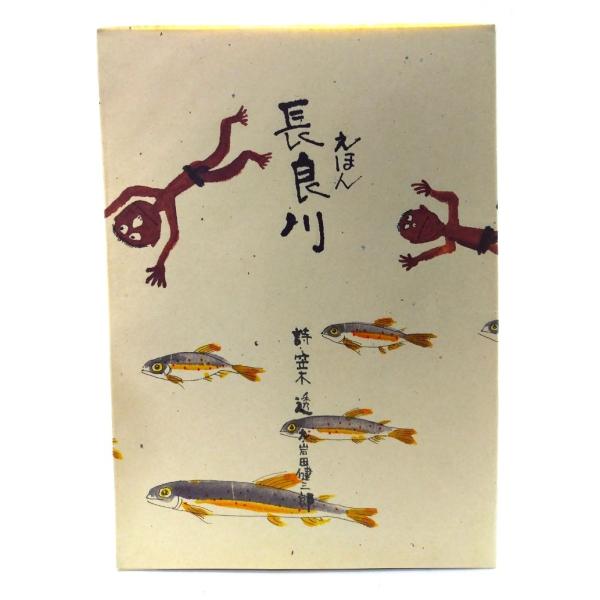 えほん
長良川
詩・笠木 透
岩田健三郎